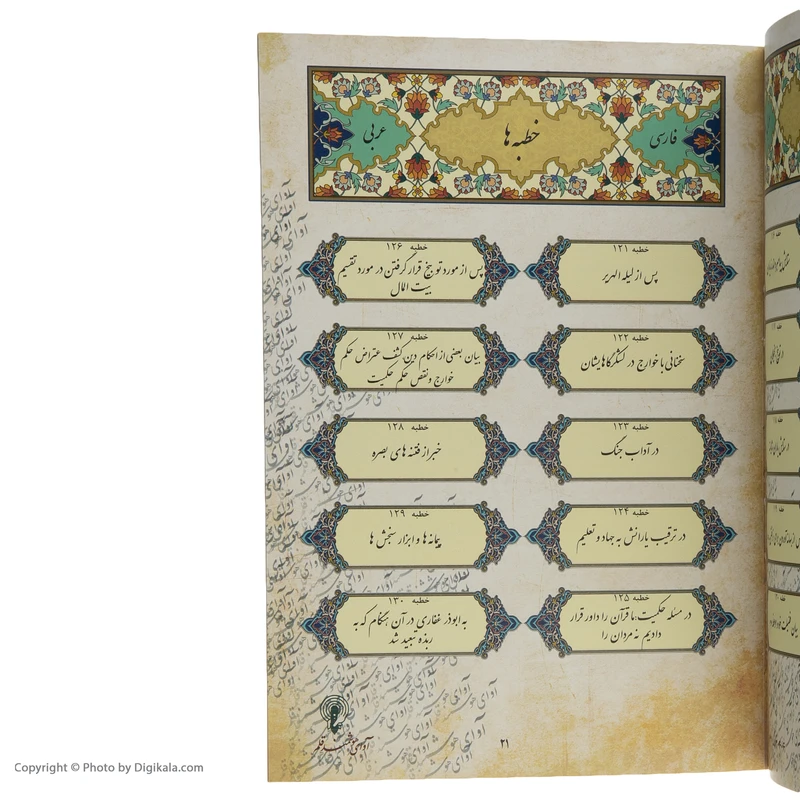 فارسی
خطبه ها
عربی
خطبه ۱۲۱
پس از لیله الهریر
خطبه ۱۲۲
سخنانی با خوارج در لشکرگاهایشان
خطبه ۱۲۳
در آداب جنگ
خطبه ۱۲۴
در ترغیب یارانش به جهاد و تعلیم
خطبه ۱۲۵
در مسئله حکمیت،ما قرآن را داور قرار
دادیم نه مردان را
خطبه ۱۲۶
پس از مورد توبیخ قرار گرفتن در مورد تقسیم
بیت المال
خطبه ۱۲۷
بیان بعضی از احکام دین کشف اعتراض حکم
خوارج و نقص حکم حکمیت
خطبه ۱۲۸
خبر از فتنه های بصره
خطبه ۱۲۹
پیمانه ها و ابزار سنجش ها
خطبه ۱۳۰
به ابوذر غفاری در آن هنگام که به
ربذه تبعید شد
۲۱
Copyright © Photo by Digikala.com